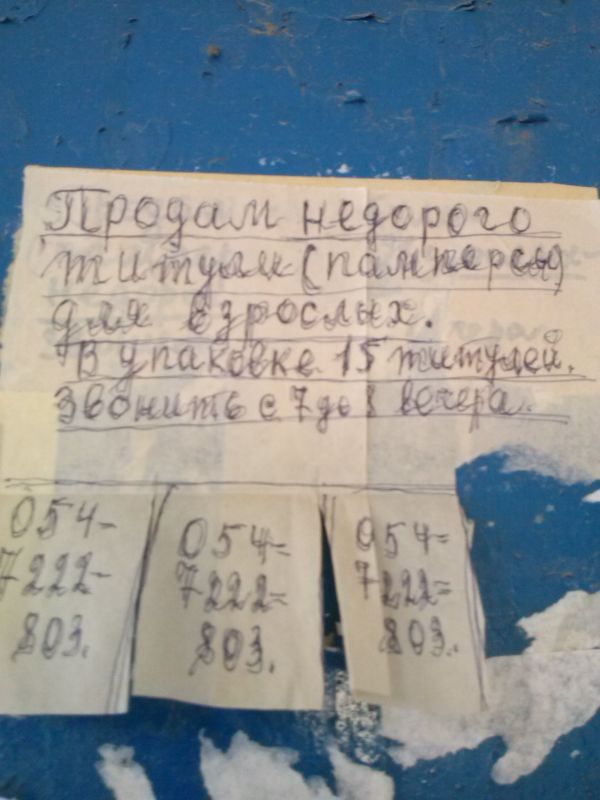 Продам недорого
титули (памперсы)
для взрослых.
В упаковке 15 титулей.
Звонить с 7 до 8 вечера.
054-
7222-
803.
054=
7222=
803.
054=
7222=
803.